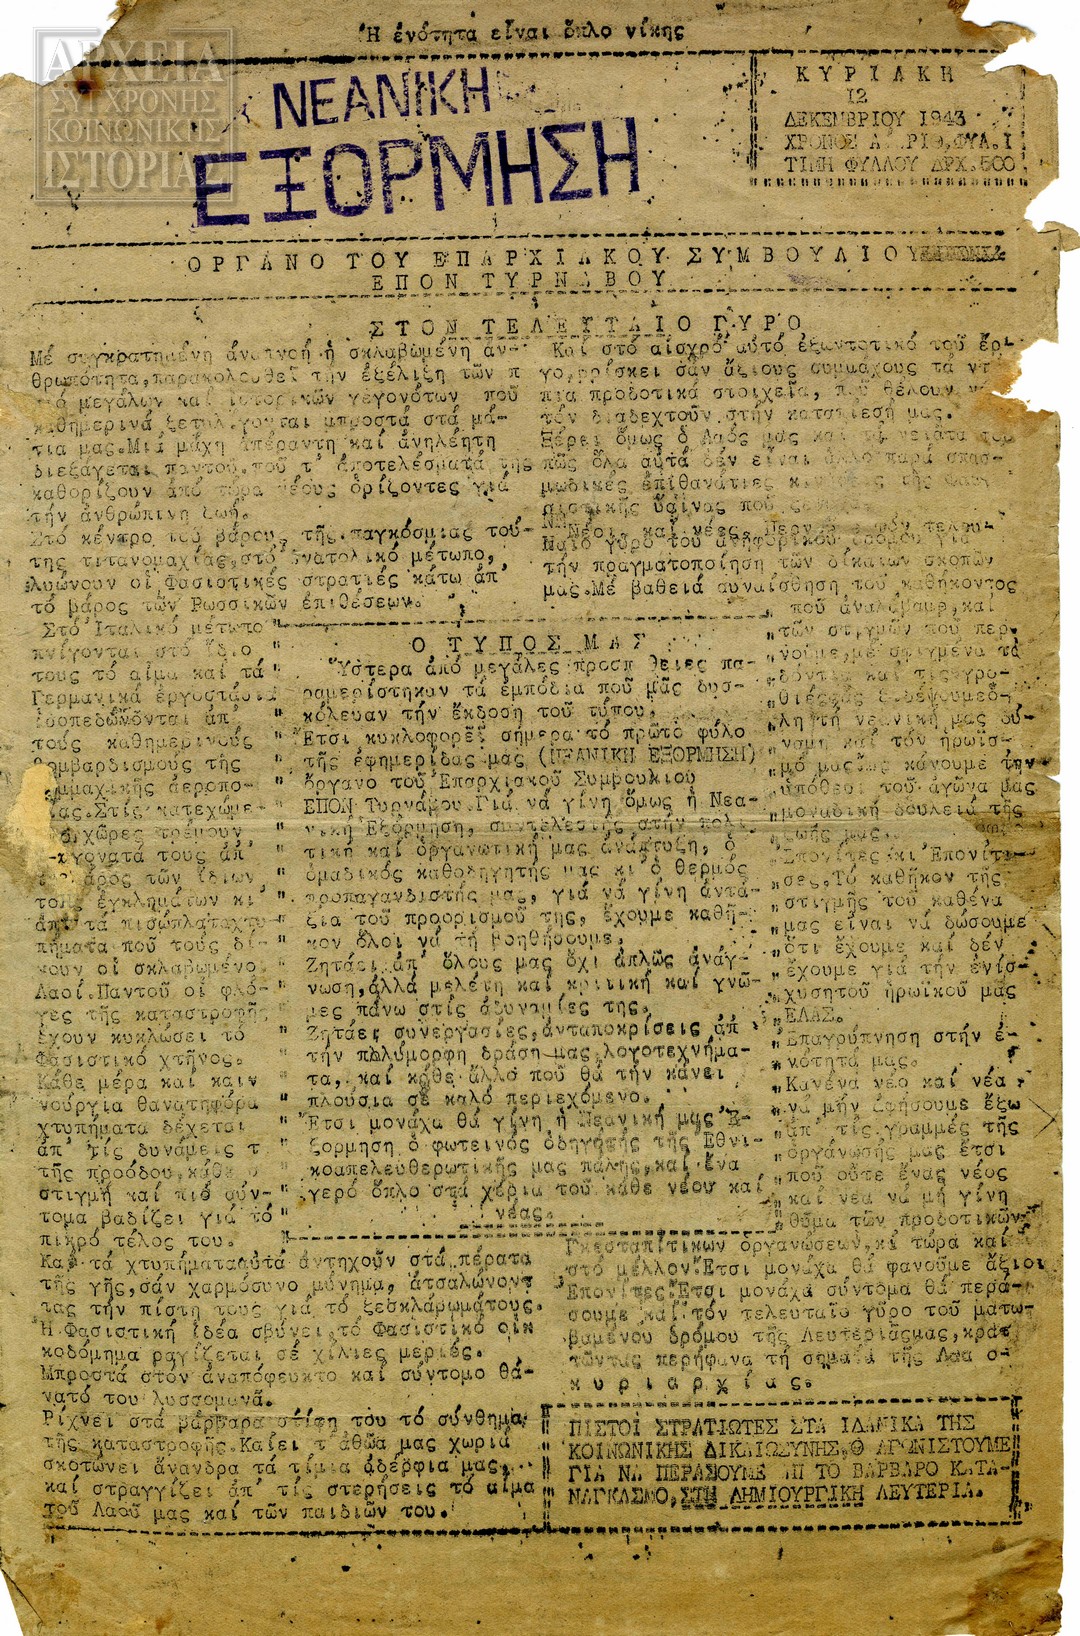 Ἡ ἑνότητα εἶναι ὅπλο νίκης
ΑΡΧΕΙΑ
ΣΥΓΧΡΟΝΗΣ
ΚΟΙΝΩΝΙΚΗΣ
ΙΣΤΟΡΙΑΣ
ΝΕΑΝΙΚΗ
ΕΞΟΡΜΗΣΗ
ΚΥΡΙΑΚΗ
12
ΔΕΚΕΜΒΡΙΟΥ 1943
ΧΡΟΝΟΣ Α ΡΙΘ.ΦΥΛ.1
ΤΙΜΗ ΦΥΛΛΟΥ ΔΡΧ.500
ΟΡΓΑΝΟ ΤΟΥ ΕΠΑΡΧΙΑΚΟΥ ΣΥΜΒΟΥΛΙΟΥ
ΕΠΟΝ ΤΥΡΝΑΒΟΥ
ΣΤΟΝ ΤΕΛΕΥΤΑΙΟ ΓΥΡΟ
Μέ συγκρατημένη ἀναπνοή ἡ σκλαβωμένη ἀν-
θρωπότητα,παρακολουθεῖ τήν ἐξέλιξη τῶν π
μεγάλων καί ἱστορικῶν γεγονότων πού
καθημερινά ξετυλ γονται μπροστά στά μά-
τια μας.Μιά μάχη ἀπέραντη καί ἀνηλέητη
διεξάγεται παντοῦ.πού τ' ἀποτελέσματά της
καθορίζουν ἀπό τώρα νέους ὁρίζοντες γιά
τήν ἀνθρώπινη ζωή.
Στό κέντρο τοῦ βάρους τῆς παγκόσμιας τού-
της τιτανομαχίας,στό νατολικό μέτωπο,
λυώνουν οἱ Φασιστικές στρατιές κάτω ἀπ'
τό βάρος τῶν Ρωσσικῶν ἐπιθέσεων.
Στό Ἰταλικό μέτωπο
πνίγονται στό ἴδιο
τους τό αἷμα καί τά
Γερμανικά ἐργοστάσια
ἰσοπεδώνονται ἀπ'
τούς καθημερινούς
βομβαρδισμούς τῆς
μμαχικῆς ἀεροπο-
ας.Στίς κατεχώμε-
χῶρες τρέμουν
γονατά τους ἀπ'
βάρος τῶν ἴδιων
τους ἐγκλημάτων κι
ἀπ' τά πισώπλαταχτυ
πήματα πού τούς δί-
νουν οἱ σκλαβωμένοι
Λαοί.Παντοῦ οἱ φλό-
γες τῆς καταστροφῆς
ἔχουν κυκλώσει τό
Φασιστικό χτῆνος.
Κάθε μέρα καί καιν
νούργια θανατηφόρα
χτυπήματα δέχεται
ἀπ' τίς δυνάμεις τ
τῆς προόδου,κάθε
στιγμή καί πιό σύν-
τομα βαδίζει γιά τό
πικρό τέλος του.
Καί τά χτυπήματααὐτά ἀντηχοῦν στά πέρατα
τῆς γῆς,σάν χαρμόσυνο μύνημα, ἀτσαλώνοντ
τας τήν πίστη τους γιά τό ξεσκλάβωμάτους.
Ἡ Φασιστική ἰδέα σβύνει,τό Φασιστικό οἰκ
κοδόμημα ραγίζεται σέ χίλιες μεριές.
Μπροστά στόν ἀναπόφευκτο καί σύντομο θά-
νατό του λυσσομανᾶ.
Ρίχνει στά βάρβαρα στίφη του τό σύνθημα
τῆς καταστροφῆς.Καίει τ'ἀθῶα μας χωριά
σκοτώνει ἄνανδρα τά τίμια ἀδέρφια μας,
καί στραγγίζει ἀπ' τίς στερήσεις τό αἷμα
τοῦ Λαοῦ μας καί τῶν παιδιῶν του.
Ο ΤΥΠΟΣ ΜΑΣ
Ὕστερα ἀπό μεγάλες προσπ θειες πα-
ραμερίστηκαν τά ἐμπόδια πού μᾶς δυσ-
κόλευαν τήν ἔκδοση τοῦ τύπου.
Ἔτσι κυκλοφορεῖ σήμερα τό πρῶτο φύλο
τῆς ἐφημερίδας μας (ΝΕΑΝΙΚΗ ΕΞΟΡΜΗΣΗ)
ὄργανο τοῦ Ἐπαρχιακοῦ Συμβουλίου
ΕΠΟΝ Τυρνάβου.Γιά νά γίνη ὅμως ἡ Νεα-
νική Ἐξόρμηση, συντελεστής στήν πολι-
τική καί ὀργανωτική μας ἀνάπτυξη, ὁ
ὁμαδικός καθοδηγητής μας κι ὁ θερμός
προπαγανδιστής μας, γιά νά γίνη ἀντά-
ξια τοῦ προορισμοῦ της, ἔχουμε καθῆ-
κον ὅλοι νά τή βοηθήσουμε.
Ζητάει ἀπ' ὅλους μας ὄχι ἁπλῶς ἀνάγ-
νωση,ἀλλά μελέτη καί κριτική καί γνῶ-
μες πάνω στίς ἀδυναμίες της.
Ζητάει συνεργασίες,ἀνταποκρίσεις ἀπ
τήν πολύμορφη δράση μας,λογοτεχνήμα-
τα, καί κάθε ἄλλο πού θά τήν κάνει
πλούσια σέ καλό περιεχόμενο.
Ἔτσι μονάχα θά γίνη ἡ Νεανική μας Ἐ-
ξόρμηση ὁ φωτεινός ὁδηγητής τῆς Ἐθνι-
κοαπελευθερωτικῆς μας πάλης,καί ἕνα
γερό ὅπλο στά χέρια τοῦ κάθε νέου καί
νέας.
Καί στό αἰσχρό αὐτό ἐξοντωτικό τοῦ ἔρ-
γο,βρίσκει σάν ἄξιους συμμάχους τά ντ
πια προδοτικά στοιχεῖα, πού θέλουν ν
τόν διαδεχτοῦν στήν καταπιεσή μας.
Ξέρει ὅμως ὁ Λαός μας καί τά νειάτα του
πῶς ὅλα αὐτά δέν εἶναι ἄλλο παρά σπασ-
μωδικές ἐπιθανάτιες κινήσεις τῆς Φασι-
στικῆς ὕαινας πού
Νέοι καί νέες. Περνᾶμε τόν τελευ-
ταῖο γῦρο τοῦ ἀνηφορικοῦ δρόμου γιά
τήν πραγματοποίηση τῶν δίκαιων σκοπῶν
μας.Μέ βαθειά συναίσθηση τοῦ καθήκοντος
πού ἀναλάβαμε,καί
τῶν στιγμῶν πού περ-
νοῦμε,μέ σφιγμένα τά
δόντια καί τίς γρο-
θιές,ἄς δέψουμεὅ-
λη τή νεανική μας δύ-
ναμη καί τόν ἡρωϊσ-
μό μας.Ἄς κάνουμε τήν
ὑπόθεση τοῦ ἀγώνα μας
μοναδική δουλειά τῆς
ζωῆς μας.
Ἐπονίτες κι Ἐπονίτι-
σες.Τό καθῆκον τῆς
στιγμῆς τοῦ καθένα
μας εἶναι νά δώσουμε
ὅτι ἔχουμε καί δέν
ἔχουμε γιά τήν ἐνίσ-
χυσητοῦ ἡρωϊκοῦ μας
ΕΛΑΣ.
Ἐπαγρύπνηση στήν ἑ-
νότητά μας.
Κανένα νέο καί νέα
νά μήν ἀφήσουμε ἔξω
ἀπ' τίς γραμμές τῆς
ὀργάνωσής μας ἔτσι
πού οὔτε ἕνας νέος
καί νέα νά μή γίνη
θῦμα τῶν προδοτικῶν
Γκεσταπίτικων ὀργανώσεων,κι τώρα καί
στό μέλλον.Ἔτσι μονάχα θά φανοῦμε ἄξιοι
Ἐπονίτες.Ἔτσι μονάχα σύντομα θά περά-
σουμε καί τόν τελευταῖο γῦρο τοῦ ματω-
βαμένου δρόμου τῆς Λευτεριᾶςμας,κρατ
τῶντας περήφανα τή σημαία τῆς Λαο ο-
κυριαρχίας.
ΠΙΣΤΟΙ ΣΤΡΑΤΙΩΤΕΣ ΣΤΑ ΙΔΑΝΙΚΑ ΤΗΣ
ΚΟΙΝΩΝΙΚΗΣ ΔΙΚΑΙΩΣΥΝΗΣ,Θ ΑΓΩΝΙΣΤΟΥΜΕ
ΓΙΑ ΝΑ ΠΕΡΑΣΟΥΜΕ ΑΠ ΤΟ ΒΑΡΒΑΡΟ ΚΑΤΑ-
ΝΑΓΚΑΣΜΟ,ΣΤΗ ΔΗΜΙΟΥΡΓΙΚΗ ΛΕΥΤΕΡΙΑ.